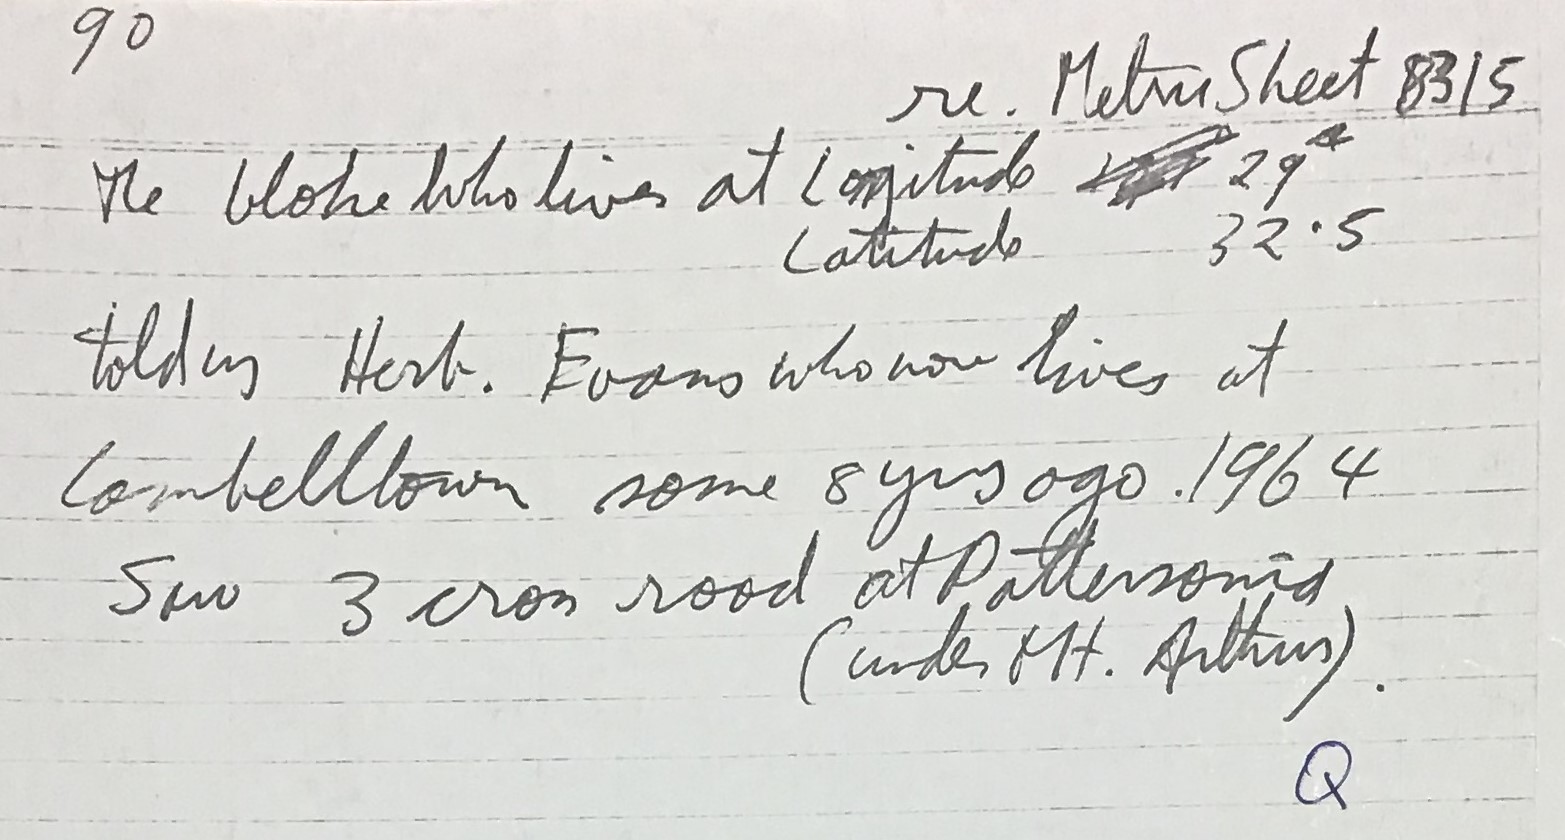 90
re. Metric Sheet 8315
The bloke who lives at Longitude 29
Latitude 32.5
told us Herb. Evans who now lives at
Cambelltown some 8 yrs ago. 1964
Saw 3 cross road at Pattersonia
(under Mt. Arthur).
Q